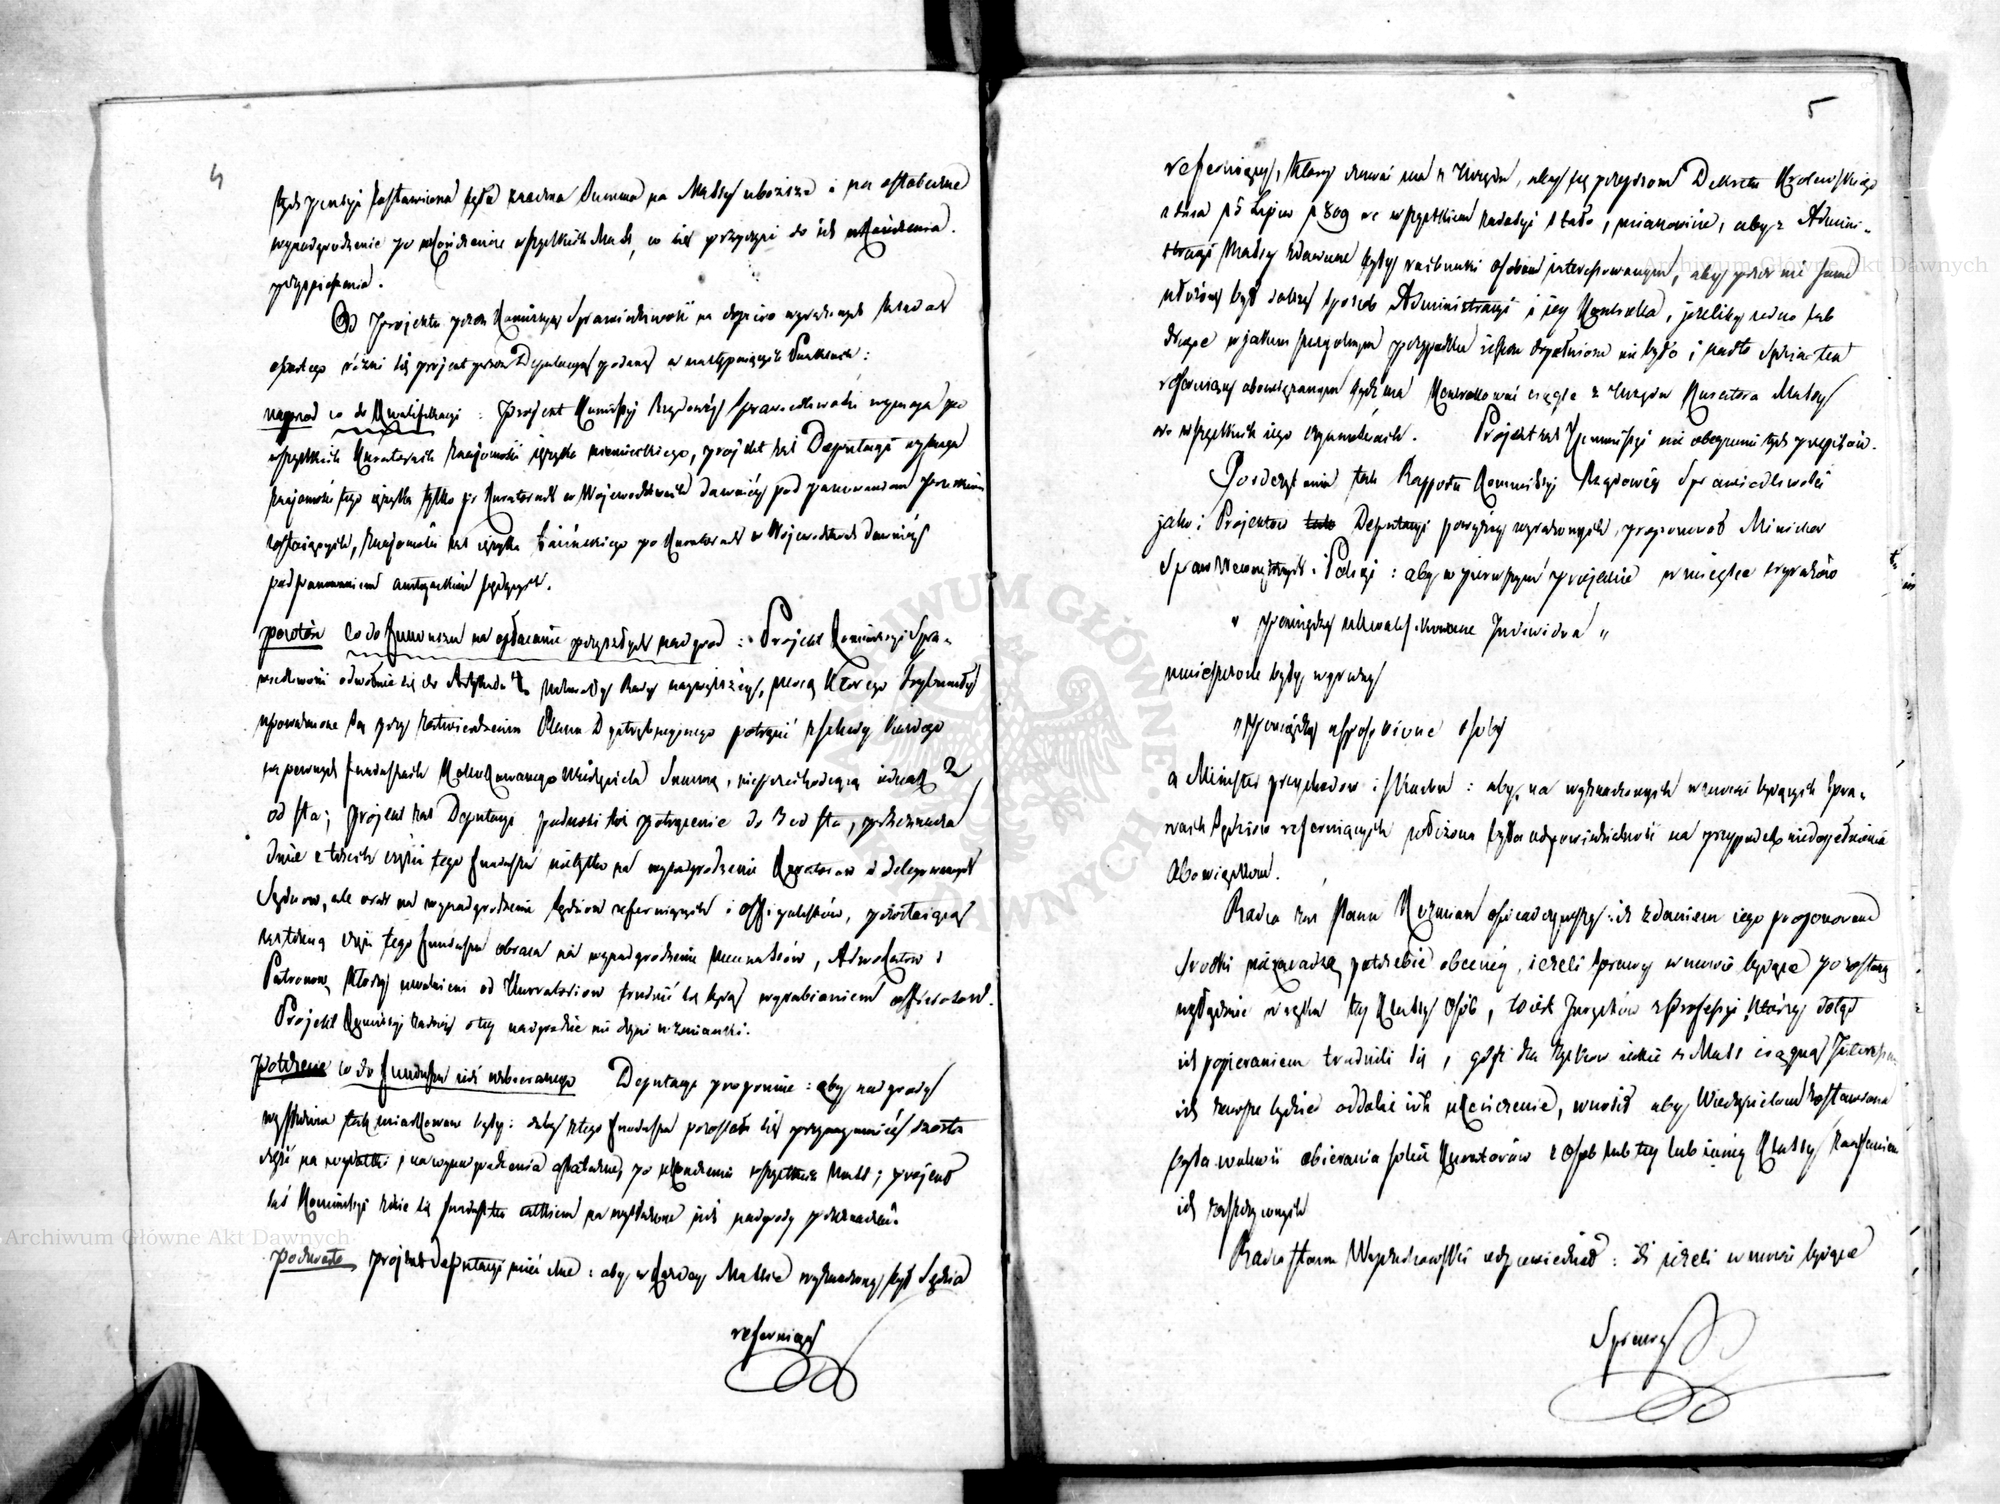 4
tych pensji zostawiona będzie znaczna Summa na Massy uboższe i na ostateczne
wynadgrodzenie po ukończeniu wszystkich Mass, co się przyczyni do ich ukończenia
przyspieszenia.
Od Projektu przez Kommissyą Sprawiedliwości na dopiero wyrażonych zasadach
opartego różni się projekt przez Deputacyą podany w następujących Punktach:
naprzód co do Kwalifikacyi: Projekt Kommissyi Rządowéy Sprawiedliwości wymaga po
wszystkich Kuratorach znajomości języka niemieckiego, projekt zaś Deputacyi wymaga
znajomości tego języka tylko po Kuratorach w Województwach dawniéy pod panowaniem pruskim
zostających, znajomości zaś języka łacińskiego po Kuratorach w Województwach dawniéy
pod panowaniem austryackim będących.
powtóre co do funduszu na opłacanie przyszłych nadgród: Projekt Kommissyi Spra-
wiedliwości odwołuje się do Artykułu 4. Uchwały Rady najwyższéy, mocą którego Trybunały
upoważnione są przy zatwierdzeniu Planu Dystrybucyjnego potrącić z schedy każdego
na pewnych funduszach Kollokowanego Wierzyciela Summę, nieprzechodzącą jednak 2
od sta; projekt zaś Deputacyi podnosi toż potrącenie do 3 od sta, przeznacza
dwie trzecich części tego funduszu nietylko na wynadgrodzenie Kuratorów i delegowanych
Sędziów, ale oraz na wynadgrodzenie Sędziów referujących i Officyalistów, pozostającą
zaś trzecią część tego funduszu obraca na wynadgrodzenie Mecenasów, Adwokatów i
Patronów, którzy uwolnieni od Kuratoriów trudnić się będą wyrabianiem
Projekt Kommissyi żadnéy o téy nadgrodzie nie czyni wzmianki.
potrzecie co do funduszu już uzbieranego Deputacya proponuje: aby nadgrody
wysłużone tak miarkowane były: żeby z tego funduszu pozostała się przynajmniéy szósta
część na wydatki, i na wynadgrodzenia ostateczne, po ukończeniu wszystkich Mass; projekt
zaś Kommissyi zdaie się fundusz ten całkiem na wysłużone już nadgrody przeznaczać.
poczwarte projekt Deputacyi mieć chce: aby w każdéy Massie wyznaczony był Sędzia
referujący
5
referujący, który czuwać ma z Urzędu, aby się przepisom Dekretu Królewskiego
z dnia 15 Lipca 1809 we wszystkiem zadosyć stało, mianowicie, aby z Admini-
stracyi Massy zdawane były rachunki osobom interessowanym, aby przez nie sam
ułożony był dalszy sposób Administracyi i jéy Kontrolla, jeżeliby jedno lub
drugie w jakim szczególnym przypadku jeszcze dopełnione nie było; nadto Sędzia ten
referujący obowiązanym bydź ma Kontrolować ciągle z Urzędu Kuratora Massy
we wszystkich jego czynnościach. Projekt zaś Kommissyi nie obejmuje tych przepisów.
Po odczytaniu tak Rapportu Kommissyi Rządowéy Sprawiedliwości
jako i Projektów Deputacyi powyżéy wyrażonych, proponował Minister
Spraw Wewnętrznych i Policyi: aby w pierwszym projekcie w miejsce wyrazów
" pomiędzy ukwalifikowane Indiwidua "
umieszczone były wyrazy
" pomiędzy usposobione osoby
a Minister przychodów i skarbu: aby, na wyznaczonych w mowie będących Spra-
wach Sędziów referujących włożona była odpowiedzialność na przypadek niedopełnienia
Obowiązków.
Radca zaś Stanu Koźmian oświadczywszy: iż zdaniem jego proponowane
środki niezaradzą potrzebie obecnéy, ieżeli sprawy w mowie będące pozostaną
wyłącznie w ręku téy Klassy Osób, to iest Jurystów z professyi, którzy dotąd
ich popieraniem trudnili się, gdyż dla zysków jakie z Mass ciągną Interessem
ich zawsze będzie oddalać ich ukończenie, wnosił aby Wierzycielom zostawiona
była wolność obierania sobie Kuratorów z Osób lub téy lub innéy Klassy zaufaniem
ich zaszczyconych
Radca Stanu Wyczechowski odpowiedział: iż jeżeli w mowie będące
Sprawy